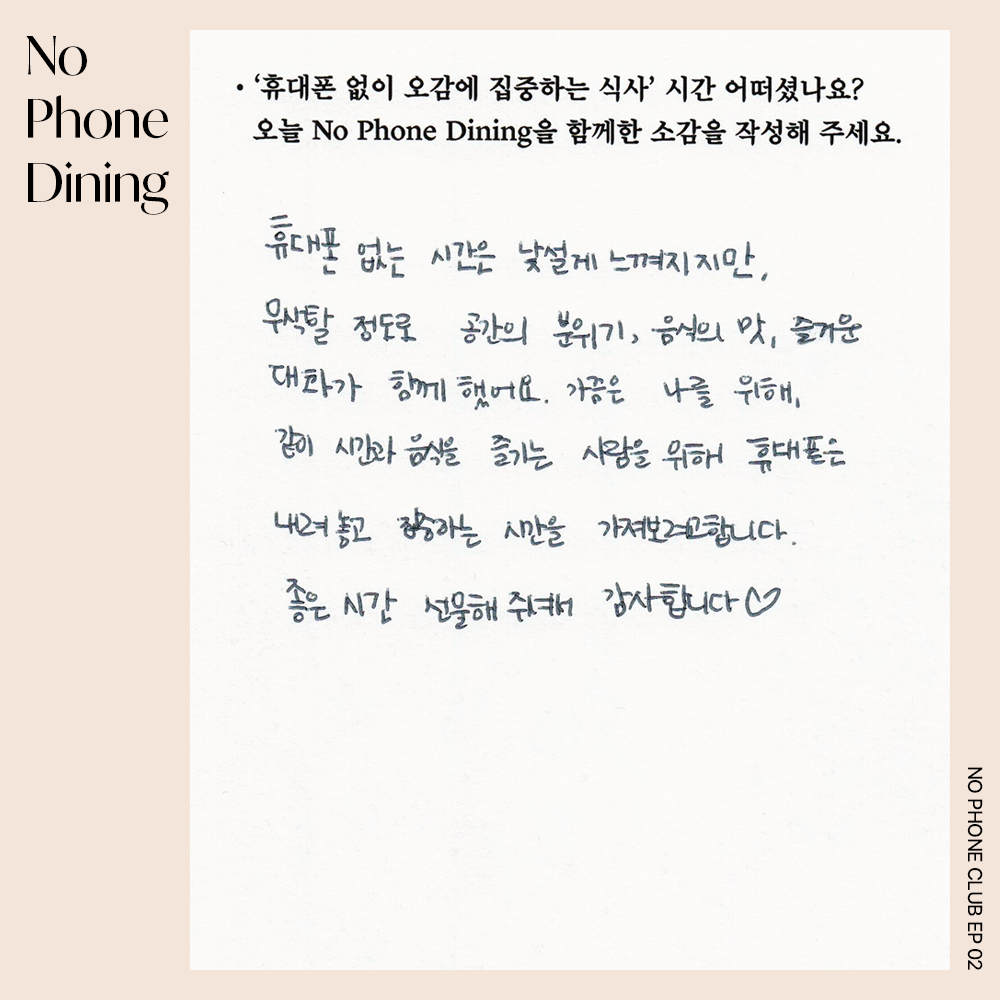 No
Phone
Dining
• ‘휴대폰 없이 오감에 집중하는 식사’ 시간 어떠셨나요?
오늘 No Phone Dining을 함께한 소감을 작성해 주세요.
휴대폰 없는 시간은 낯설게 느껴지지만,
무색할 정도로 공간의 분위기, 음식의 맛, 즐거운
대화가 함께 했어요. 가끔은 나를 위해,
같이 시간과 음식을 즐기는 사람을 위해 휴대폰은
내려놓고 집중하는 시간을 가져보려고합니다.
좋은 시간 선물해 주셔서 감사합니다♡
NO PHONE CLUB EP 02